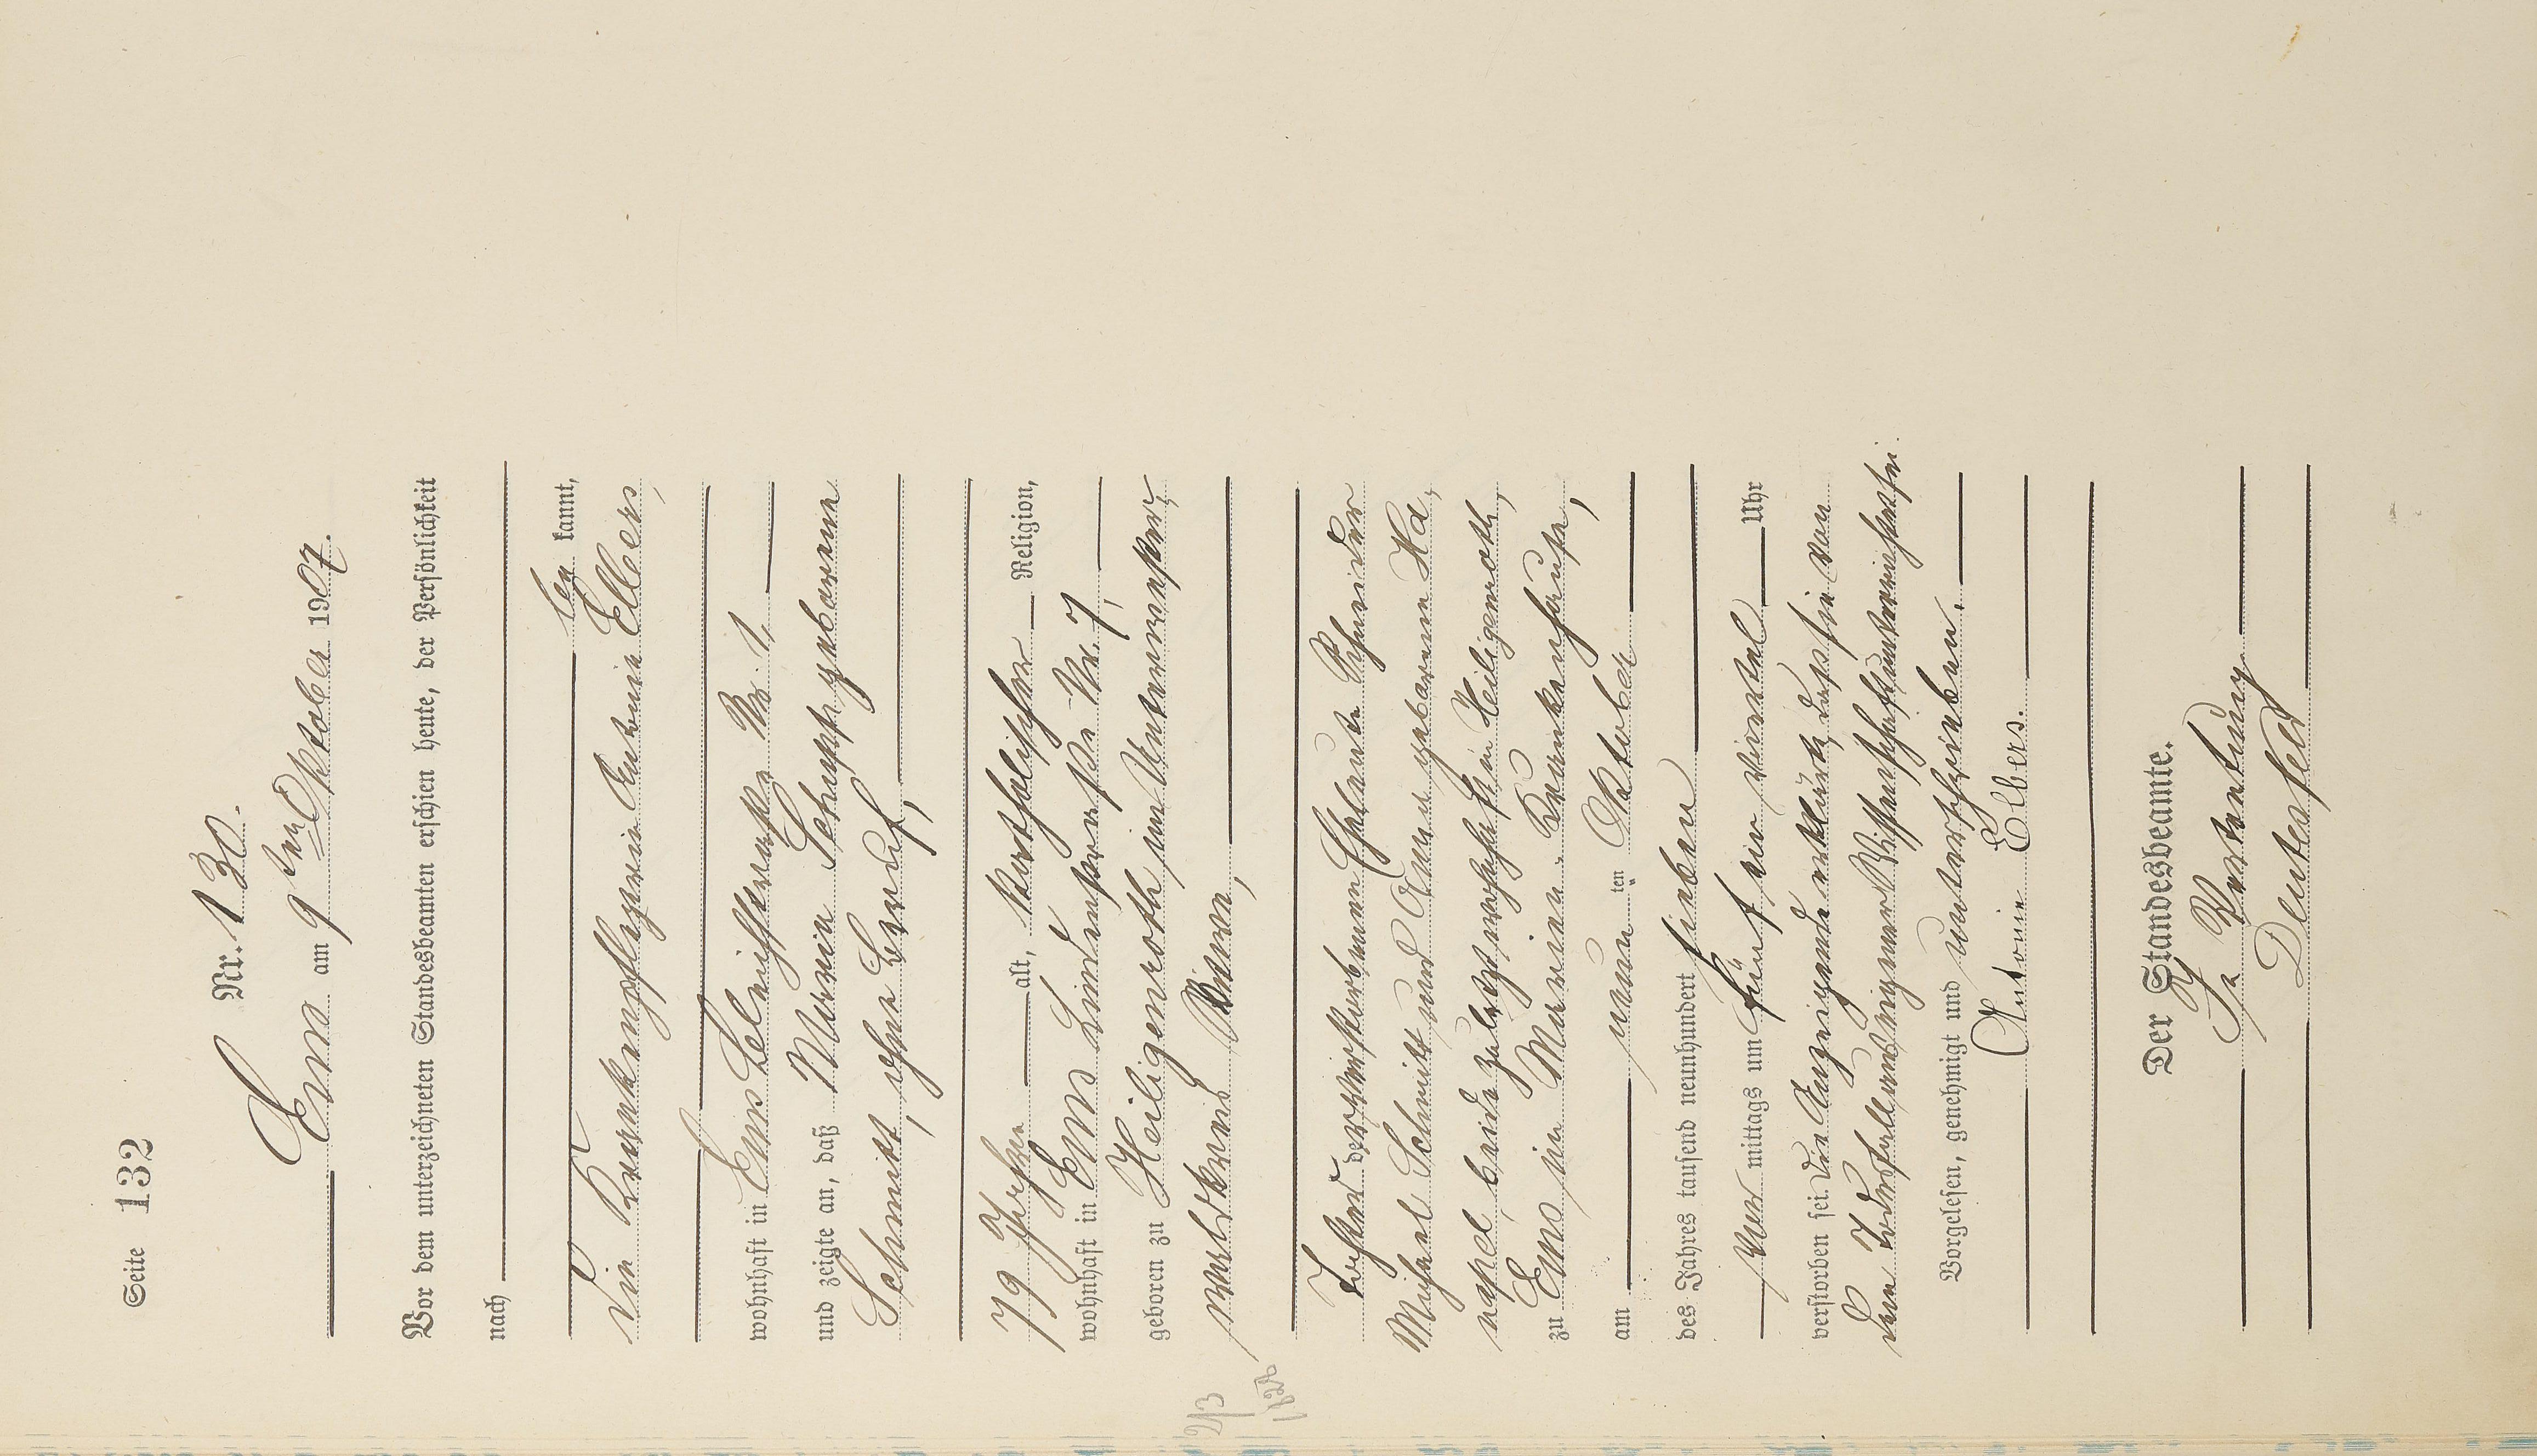 Seite 132
Nr. 130.
Ems am 9ten Oktober 1907.
Vor dem unterzeichneten Standesbeamten erschien heute, der Persönlichkeit
nach
be kannt,
die Krankenpflegerin Antonie Elbers,
wohnhaft in Ems Bleichstraße Nr. 1,
und zeigte an, daß Maria Schupp geborene
Schmitt, ohne Beruf,
79 Jahre alt, katholischer Religion,
wohnhaft in Ems Lindenstraße Nr. 7,
geboren zu Heiligenroth im Unterwester-
waldkreis, Witwe,
Tochter der verstorbenen Eheleute Schneider
Michael Schmitt und Anna geborene Ha-
, beide zuletzt wohnhaft in Heiligenroth,
zu Ems im Marien-Krankenhause,
am neun ten Oktober
des Jahres tausend neunhundert sieben
Vor mittags um fünf ein viertel Uhr
verstorben sei. Die Anzeigende erklärte, daß sie von
dem Todesfalle aus eigener Wissenschaft unterrichtet sei.
Vorgelesen, genehmigt und unterschrieben.
Antonie Elbers.
Der Standesbeamte.
In Vertretung
2/3
1828